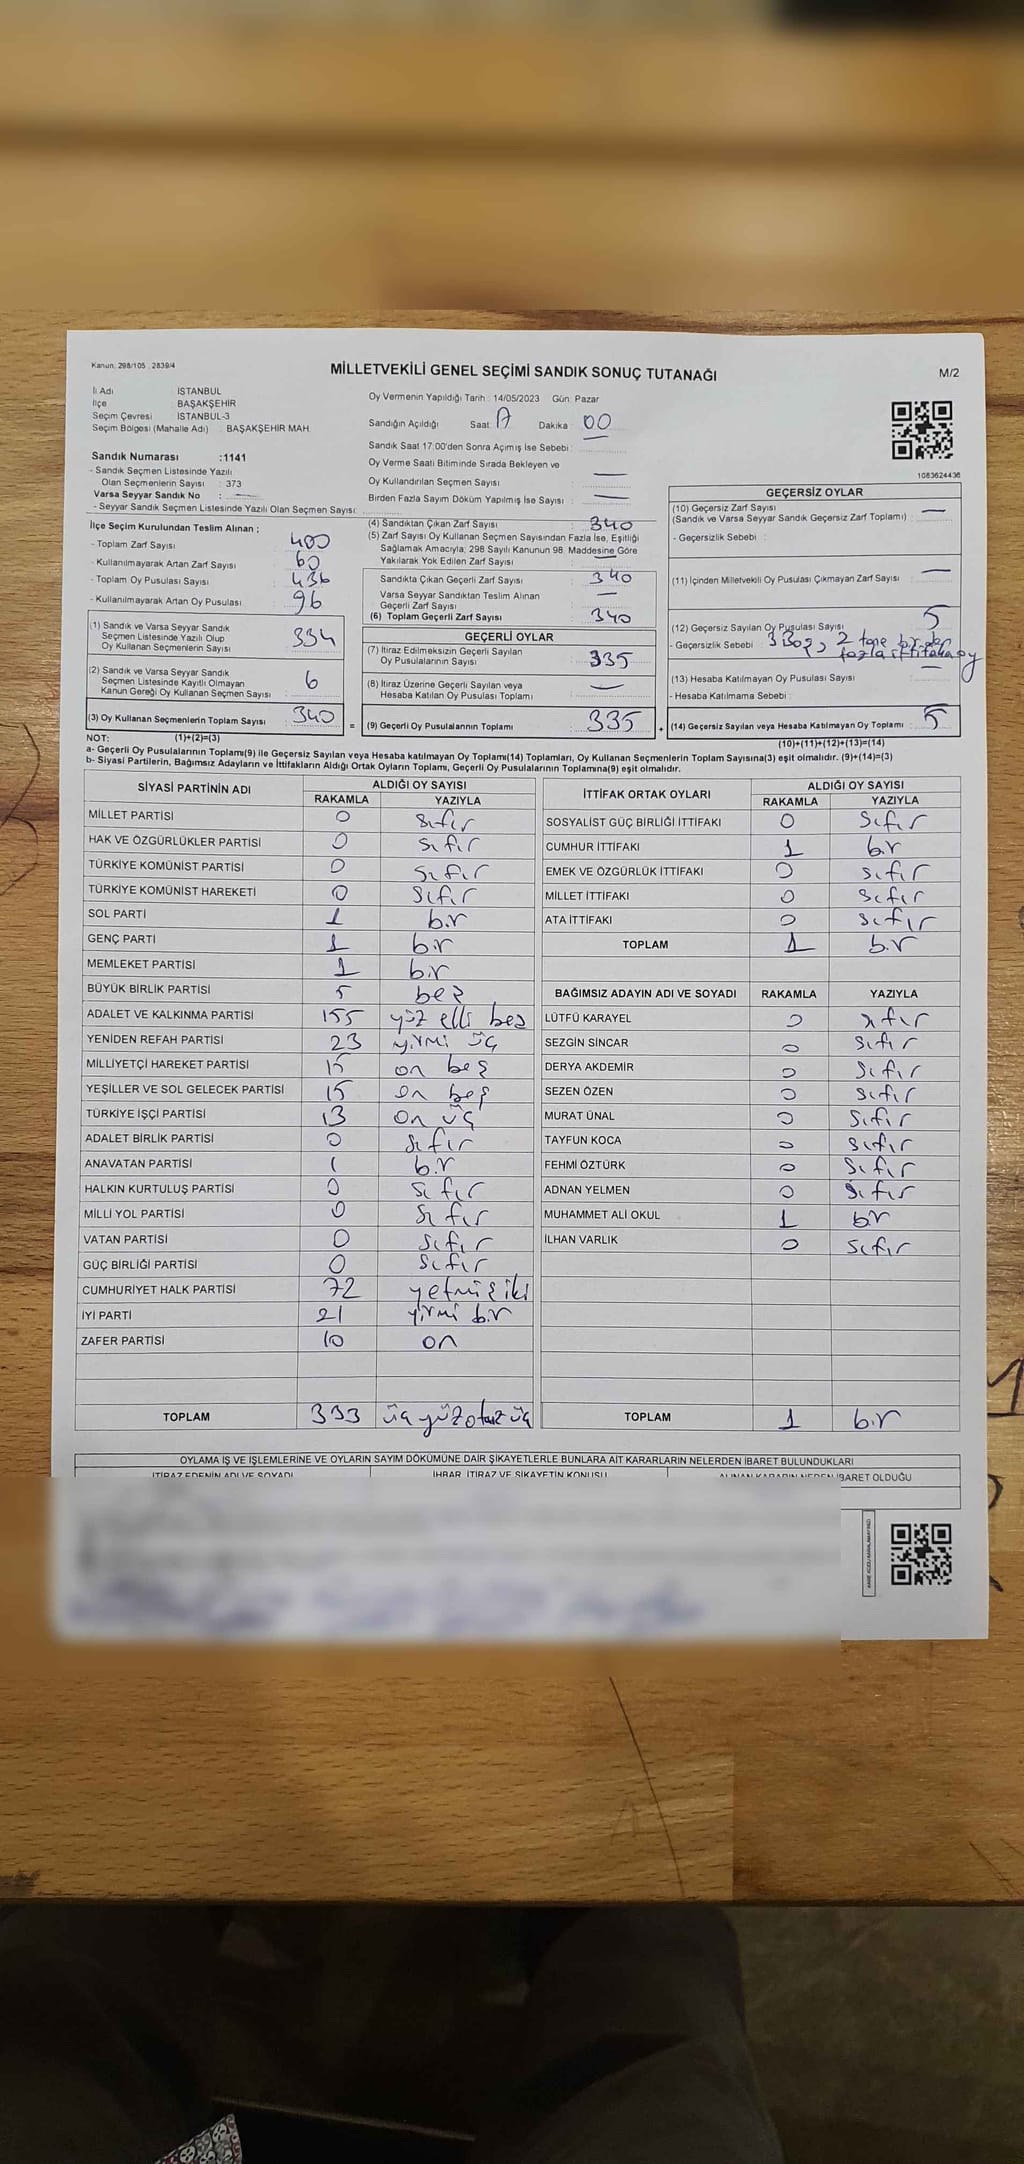 Kanun: 298/105 , 2839/4
MİLLETVEKİLİ GENEL SEÇİMİ SANDIK SONUÇ TUTANAĞI
M/2
İl Adı İSTANBUL
İlçe BAŞAKŞEHİR
Seçim Çevresi İSTANBUL-3
Seçim Bölgesi (Mahalle Adı) BAŞAKŞEHİR MAH.
Oy Vermenin Yapıldığı Tarih : 14/05/2023 Gün: Pazar
Sandığın Açıldığı Saat: 17 Dakika : 00
Sandık Saat 17:00'den Sonra Açılmış İse Sebebi :
Oy Verme Saati Bitiminde Sırada Bekleyen ve
Oy Kullandırılan Seçmen Sayısı : —
Birden Fazla Sayım Döküm Yapılmış İse Sayısı : —
1083624436
Sandık Numarası :1141
- Sandık Seçmen Listesinde Yazılı
Olan Seçmenlerin Sayısı : 373
Varsa Seyyar Sandık No : —
- Seyyar Sandık Seçmen Listesinde Yazılı Olan Seçmen Sayısı:
İlçe Seçim Kurulundan Teslim Alınan ;
- Toplam Zarf Sayısı : 400
- Kullanılmayarak Artan Zarf Sayısı : 60
- Toplam Oy Pusulası Sayısı : 436
- Kullanılmayarak Artan Oy Pusulası : 96
(1) Sandık ve Varsa Seyyar Sandık
Seçmen Listesinde Yazılı Olup
Oy Kullanan Seçmenlerin Sayısı : 334
(2) Sandık ve Varsa Seyyar Sandık
Seçmen Listesinde Kayıtlı Olmayan
Kanun Gereği Oy Kullanan Seçmen Sayısı : 6
(3) Oy Kullanan Seçmenlerin Toplam Sayısı : 340
(4) Sandıktan Çıkan Zarf Sayısı : 340
(5) Zarf Sayısı Oy Kullanan Seçmen Sayısından Fazla İse, Eşitliği
Sağlamak Amacıyla; 298 Sayılı Kanunun 98. Maddesine Göre
Yakılarak Yok Edilen Zarf Sayısı : —
Sandıkta Çıkan Geçerli Zarf Sayısı : 340
Varsa Seyyar Sandıktan Teslim Alınan
Geçerli Zarf Sayısı : —
(6) Toplam Geçerli Zarf Sayısı : 340
GEÇERLİ OYLAR
(7) İtiraz Edilmeksizin Geçerli Sayılan
Oy Pusulalarının Sayısı : 335
(8) İtiraz Üzerine Geçerli Sayılan veya
Hesaba Katılan Oy Pusulası Toplamı : —
= (9) Geçerli Oy Pusulalarının Toplamı : 335
GEÇERSİZ OYLAR
(10) Geçersiz Zarf Sayısı
(Sandık ve Varsa Seyyar Sandık Geçersiz Zarf Toplamı) : —
- Geçersizlik Sebebi :
(11) İçinden Milletvekili Oy Pusulası Çıkmayan Zarf Sayısı : —
(12) Geçersiz Sayılan Oy Pusulası Sayısı : 5
- Geçersizlik Sebebi : 3 Boş, 2 tane birden
fazla ittifaka oy
(13) Hesaba Katılmayan Oy Pusulası Sayısı : —
- Hesaba Katılmama Sebebi :
+ (14) Geçersiz Sayılan veya Hesaba Katılmayan Oy Toplamı : 5
NOT: (1)+(2)=(3)
(10)+(11)+(12)+(13)=(14)
a- Geçerli Oy Pusulalarının Toplamı(9) ile Geçersiz Sayılan veya Hesaba katılmayan Oy Toplamı(14) Toplamları, Oy Kullanan Seçmenlerin Toplam Sayısına(3) eşit olmalıdır. (9)+(14)=(3)
b- Siyasi Partilerin, Bağımsız Adayların ve İttifakların Aldığı Ortak Oyların Toplamı, Geçerli Oy Pusulalarının Toplamına(9) eşit olmalıdır.
SİYASİ PARTİNİN ADI ALDIĞI OY SAYISI
RAKAMLA YAZIYLA
MİLLET PARTİSİ 0 sıfır
HAK VE ÖZGÜRLÜKLER PARTİSİ 0 sıfır
TÜRKİYE KOMÜNİST PARTİSİ 0 sıfır
TÜRKİYE KOMÜNİST HAREKETİ 0 sıfır
SOL PARTİ 1 bir
GENÇ PARTİ 1 bir
MEMLEKET PARTİSİ 1 bir
BÜYÜK BİRLİK PARTİSİ 5 beş
ADALET VE KALKINMA PARTİSİ 155 yüz elli beş
YENİDEN REFAH PARTİSİ 23 yirmi üç
MİLLİYETÇİ HAREKET PARTİSİ 15 on beş
YEŞİLLER VE SOL GELECEK PARTİSİ 15 on beş
TÜRKİYE İŞÇİ PARTİSİ 13 on üç
ADALET BİRLİK PARTİSİ 0 sıfır
ANAVATAN PARTİSİ 1 bir
HALKIN KURTULUŞ PARTİSİ 0 sıfır
MİLLİ YOL PARTİSİ 0 sıfır
VATAN PARTİSİ 0 sıfır
GÜÇ BİRLİĞİ PARTİSİ 0 sıfır
CUMHURİYET HALK PARTİSİ 72 yetmiş iki
İYİ PARTİ 21 yirmi bir
ZAFER PARTİSİ 10 on
TOPLAM 333 üç yüz otuz üç
İTTİFAK ORTAK OYLARI ALDIĞI OY SAYISI
RAKAMLA YAZIYLA
SOSYALİST GÜÇ BİRLİĞİ İTTİFAKI 0 sıfır
CUMHUR İTTİFAKI 1 bir
EMEK VE ÖZGÜRLÜK İTTİFAKI 0 sıfır
MİLLET İTTİFAKI 0 sıfır
ATA İTTİFAKI 0 sıfır
TOPLAM 1 bir
BAĞIMSIZ ADAYIN ADI VE SOYADI RAKAMLA YAZIYLA
LÜTFÜ KARAYEL 0 sıfır
SEZGİN SİNCAR 0 sıfır
DERYA AKDEMİR 0 sıfır
SEZEN ÖZEN 0 sıfır
MURAT ÜNAL 0 sıfır
TAYFUN KOCA 0 sıfır
FEHMİ ÖZTÜRK 0 sıfır
ADNAN YELMEN 0 sıfır
MUHAMMET ALİ OKUL 1 bir
İLHAN VARLIK 0 sıfır
TOPLAM 1 bir
OYLAMA İŞ VE İŞLEMLERİNE VE OYLARIN SAYIM DÖKÜMÜNE DAİR ŞİKAYETLERLE BUNLARA AİT KARARLARIN NELERDEN İBARET BULUNDUKLARI
İTİRAZ EDENİN ADI VE SOYADI İHBAR, İTİRAZ VE ŞİKAYETİN KONUSU ALINAN KARARIN NEDEN İBARET OLDUĞU